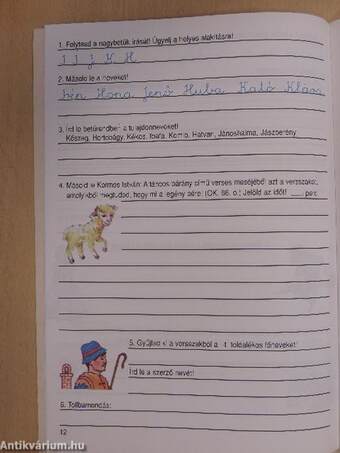 1. Folytasd a nagybetűk írását! Ügyelj a helyes alakításra!
I I J K H
2. Másold le a neveket!
Ilona Jenő Huba Kató Klára
3. Írd le betűrendben a tulajdonneveket!
Kőszeg, Hortobágy, Kékes, Ibafa, Komló, Hatvan, Jánoshalma, Jászberény
4. Másold le Kormos István: A táncos bárány című verses meséjéből azt a versszakot,
amelyikből megtudod, hogy mi a legény bére! (OK. 66. o.) Jelöld az időt! ___ perc
5. Gyűjtsd ki a versszakból a -t toldalékos főneveket!
Írd le a szerző nevét!
6. Tollbamondás:
12
Antikvárium.hu